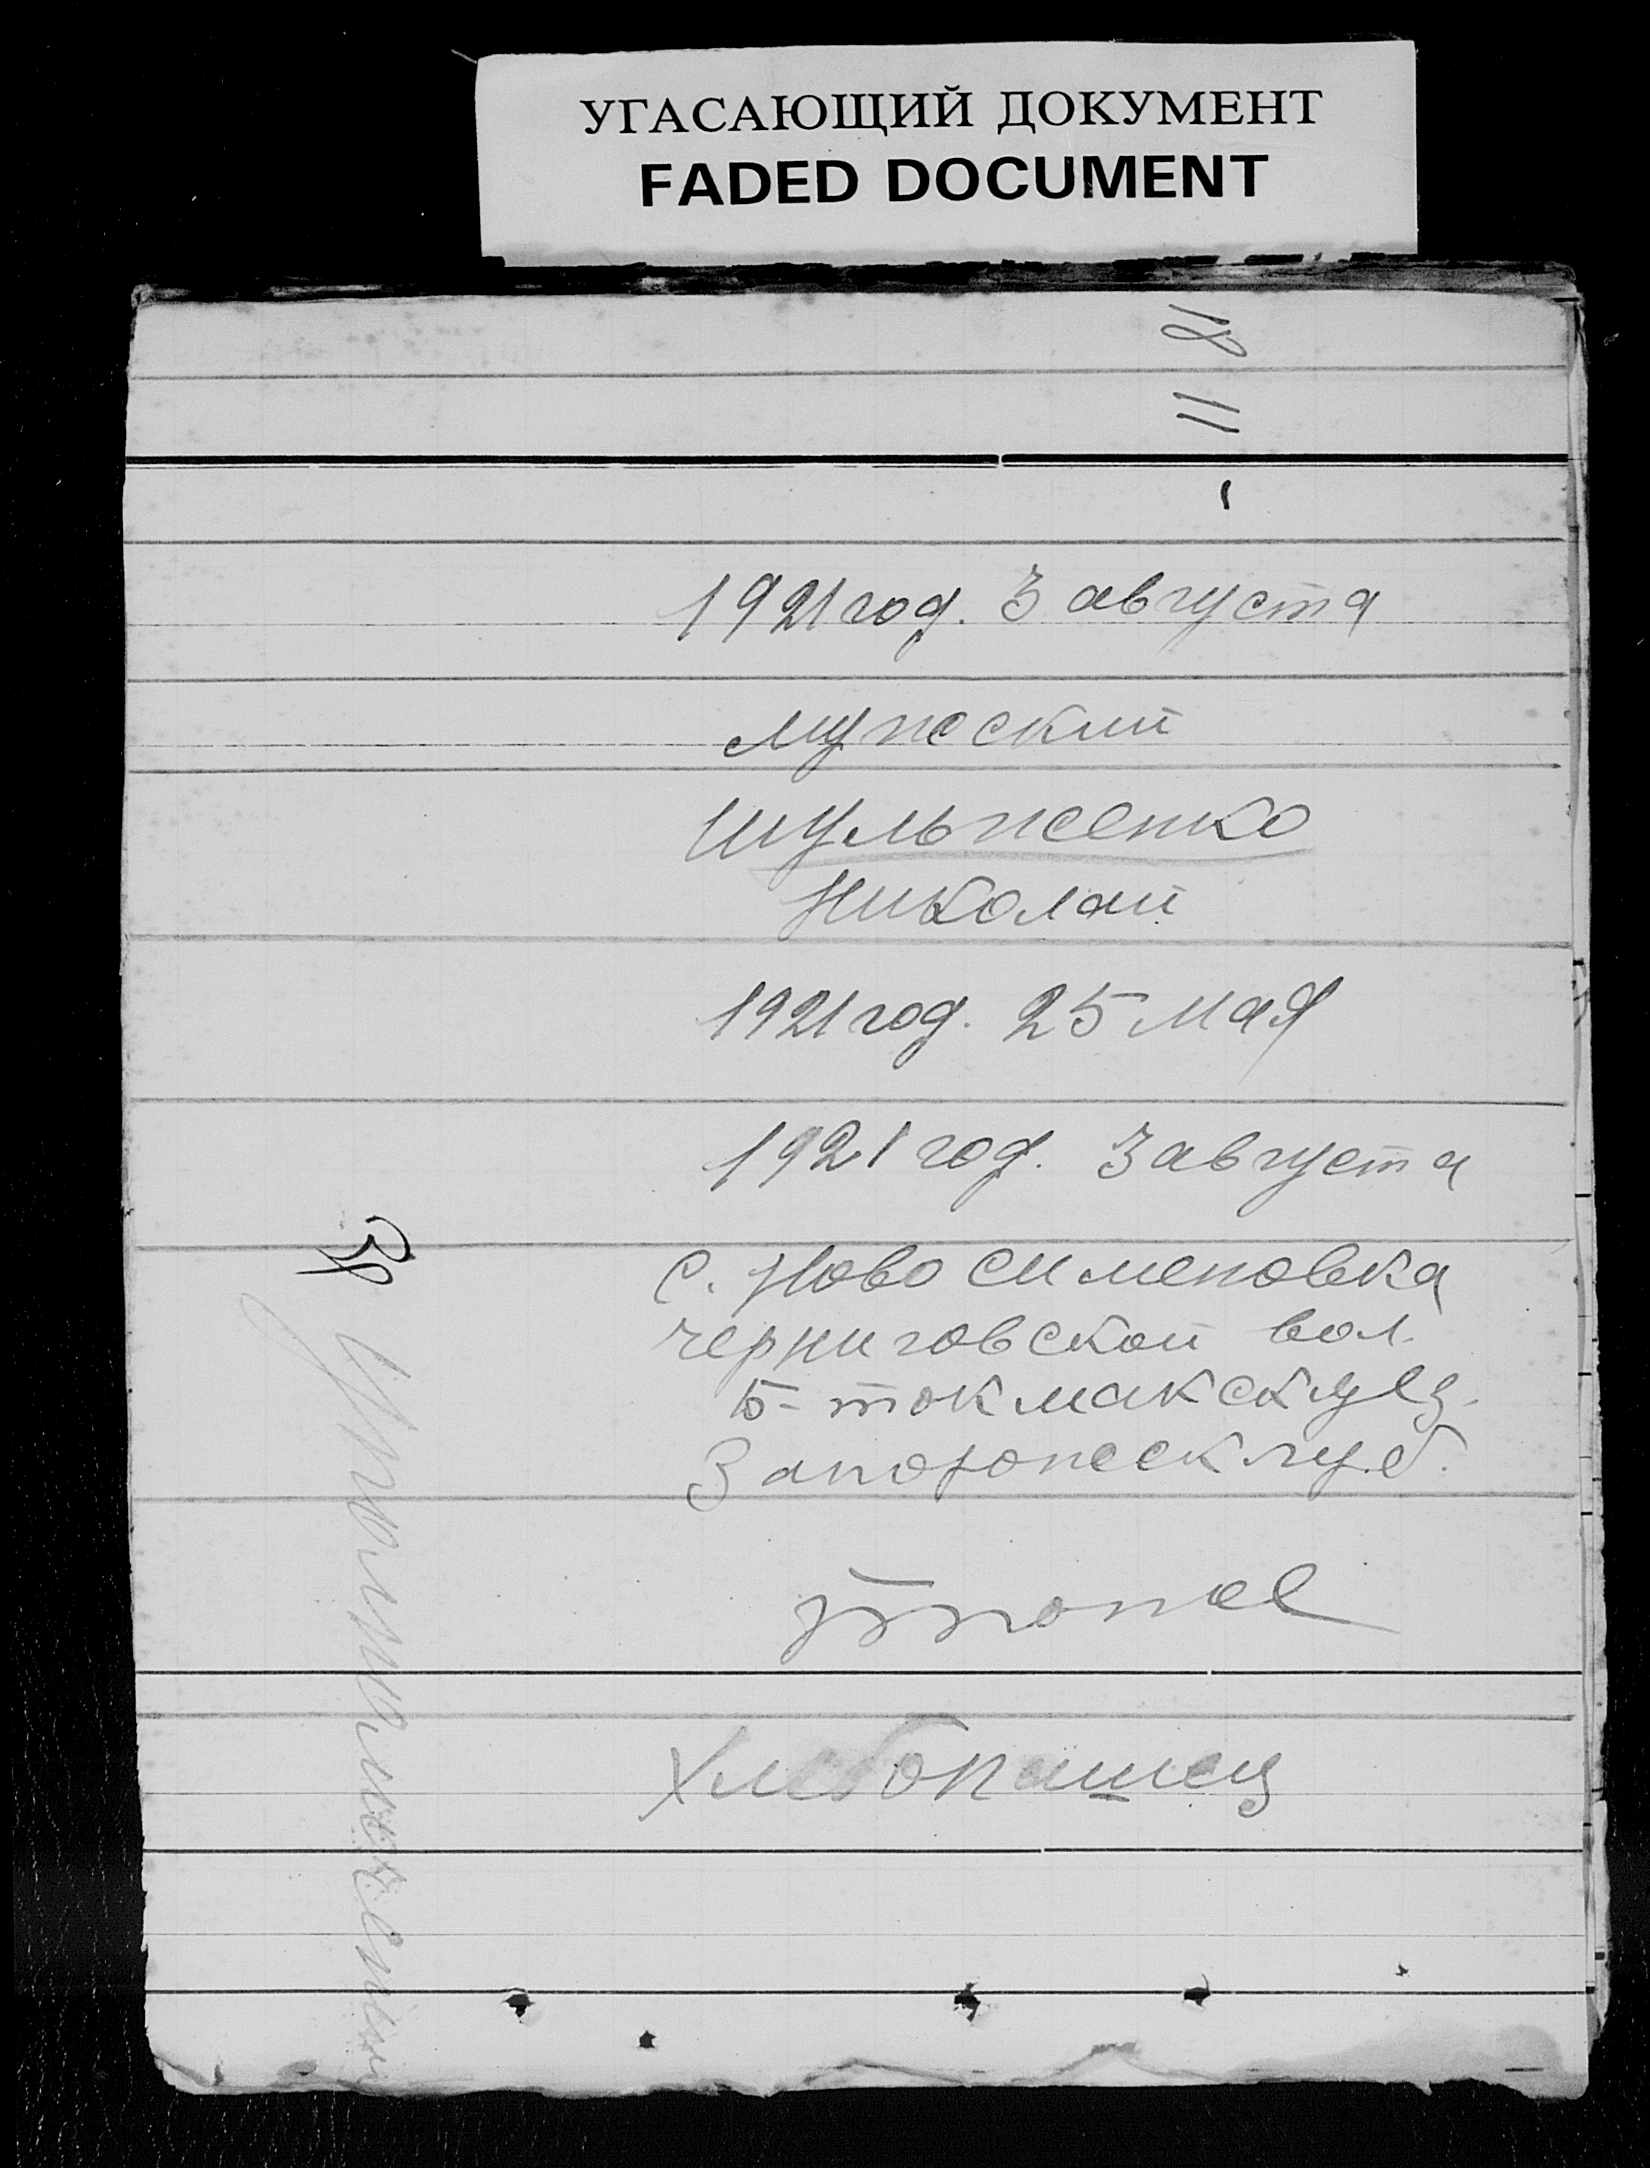 УГАСАЮЩИЙ ДОКУМЕНТ
FADED DOCUMENT
18
11
1921 год. 3 августа
мужеский
Шульженко
Николай
1921 год. 25 мая
1921 год. 3 августа
с. Ново Сименовка
Черниговской вол.
Б-Токмакск уез.
Запорожеск губ.
Хлебопашец